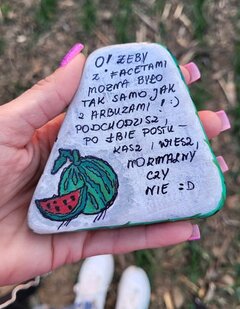 O! ŻEBY
Z FACETAMI
MOŻNA BYŁO
TAK SAMO, JAK
Z ARBUZAMI! :)
PODCHODZISZ,
PO ŁBIE POSTU-
KASZ I WIESZ,
NORMALNY
CZY
NIE =D